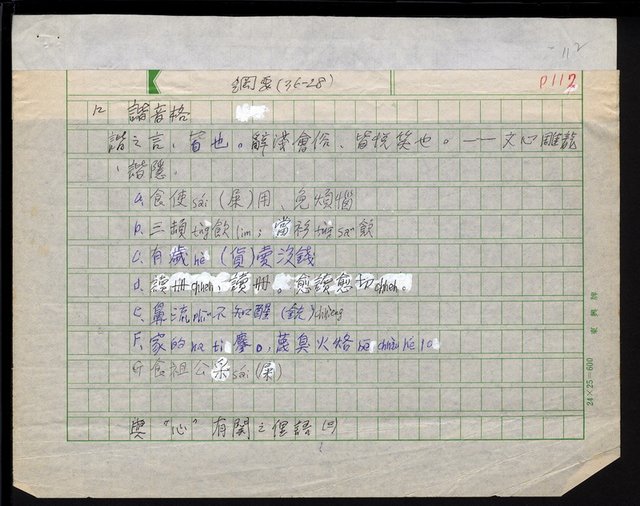 112
綱要(36-28)
P112
12 諧音格
諧之言、皆也。辭淺會俗、皆悅笑也。——文心雕龍
、諧隱。
a. 食使sái(屎)用、免煩惱
b. 三頓tǹg飲lim；當衫tǹg saⁿ飲
c. 有歲hè(貨)賣沒錢
d. 讀冊chheh、讀冊。愈讀愈切chheh。
e. 鼻流 不知醒(銑)
F. 家的ka ti 。，萬臭火烙
G 食祖公采sái(屎)
與“心”有關之俚語
24×25=600